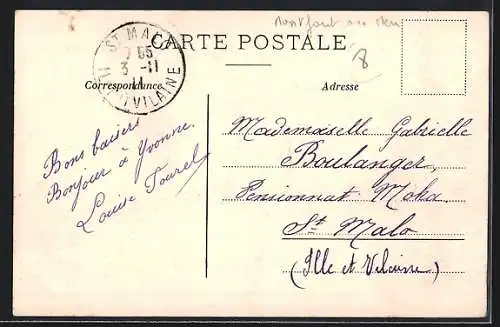 Montfort sur Meu
CARTE POSTALE
8
ST MALO
7 55
3 -11
11
ILLE ET VILAINE
Correspondance
Adresse
Bons baisers
Bonjour à Yvonne.
Louise Tourel
Mademoiselle Gabrielle
Boulanger,
Pensionnat Moka
St Malo
(Ille et Vilaine)